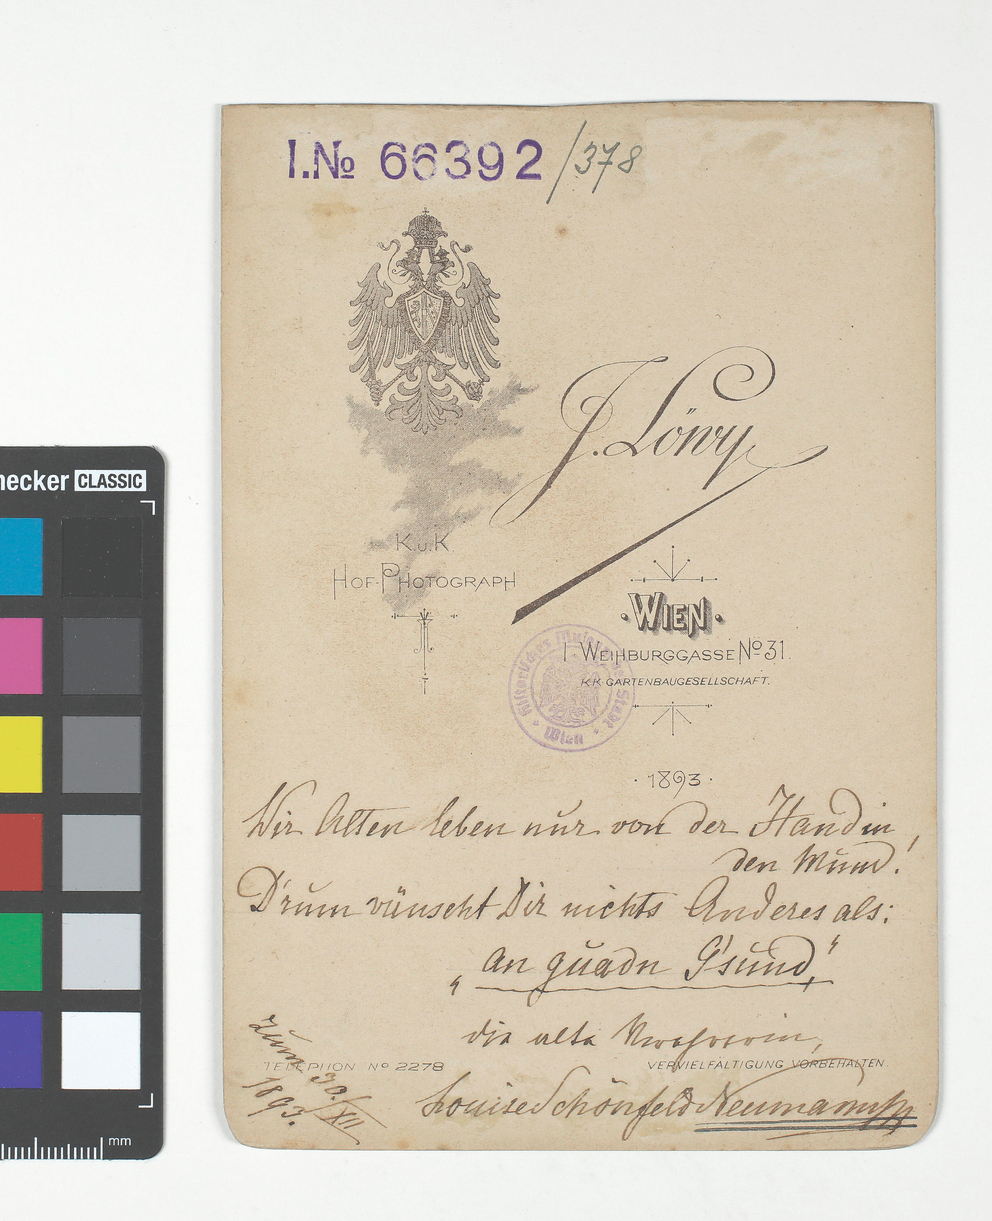 necker CLASSIC
mm
I.No 66392/378
J. Löwy
K.u.K
HOF-PHOTOGRAPH
WIEN
I. WEIHBURGGASSE No 31.
K.K. GARTENBAUGESELLSCHAFT.
Historisches Museum der Stadt Wien
1893
Wir Alten leben nur von der Hand in
den Mund!
D'rum wünscht Dir nichts Anderes als:
„an guadn G'sund,"
die alte
TELEPHON No 2278
VERVIELFÄLTIGUNG VORBEHALTEN.
Louise Schönfeld Neumann
Zum 30./XII
1893.